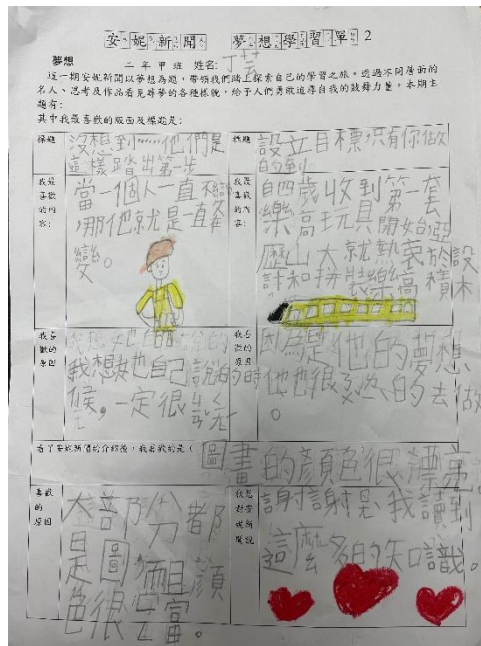 安妮新聞 夢想學習單 2
夢想 二年甲班 姓名:
這一期安妮新聞以夢想為題,帶領我們踏上探索自己的學習之旅。透過不同層面的
名人、思考及作品看見尋夢的各種樣貌,給予人們勇敢追尋自我的鼓舞力量。本期主
題有:
其中我最喜歡的版面及標題是:
標題
沒想到……他們是
這樣踏出第一步
標題
設立目標只有你做
的到
我最喜歡的內容:
當一個人一直不
那他就是一直
變。
我最喜歡的內容:
自四歲收到第一套
樂高玩具開始
歷山大就熱衷於設
計和拼裝樂高積木
我喜歡的原因
我想她自己說的時
候,一定很
我喜歡的原因
因為是他的夢想
他也很
的去做
。
看了安妮新聞的介紹後,我喜歡的是(圖畫的顏色很漂亮。
喜歡的原因
大部分都
是圖 而且顏
色很豐富。
我想對安妮新聞說
謝謝 我讀到
這麼多的知識。